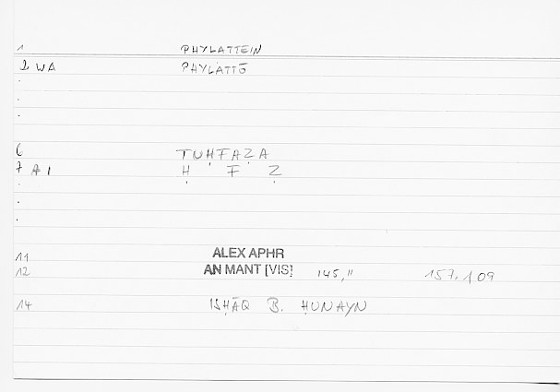 1 PHYLATTEIN
2 WA PHYLATTŌ
6 TUḤFAẒA
7 A I Ḥ F Ẓ
11 ALEX APHR
12 AN MANT [VIS] 145,11 157.109
14 ISḤĀQ B. ḤUNAYN